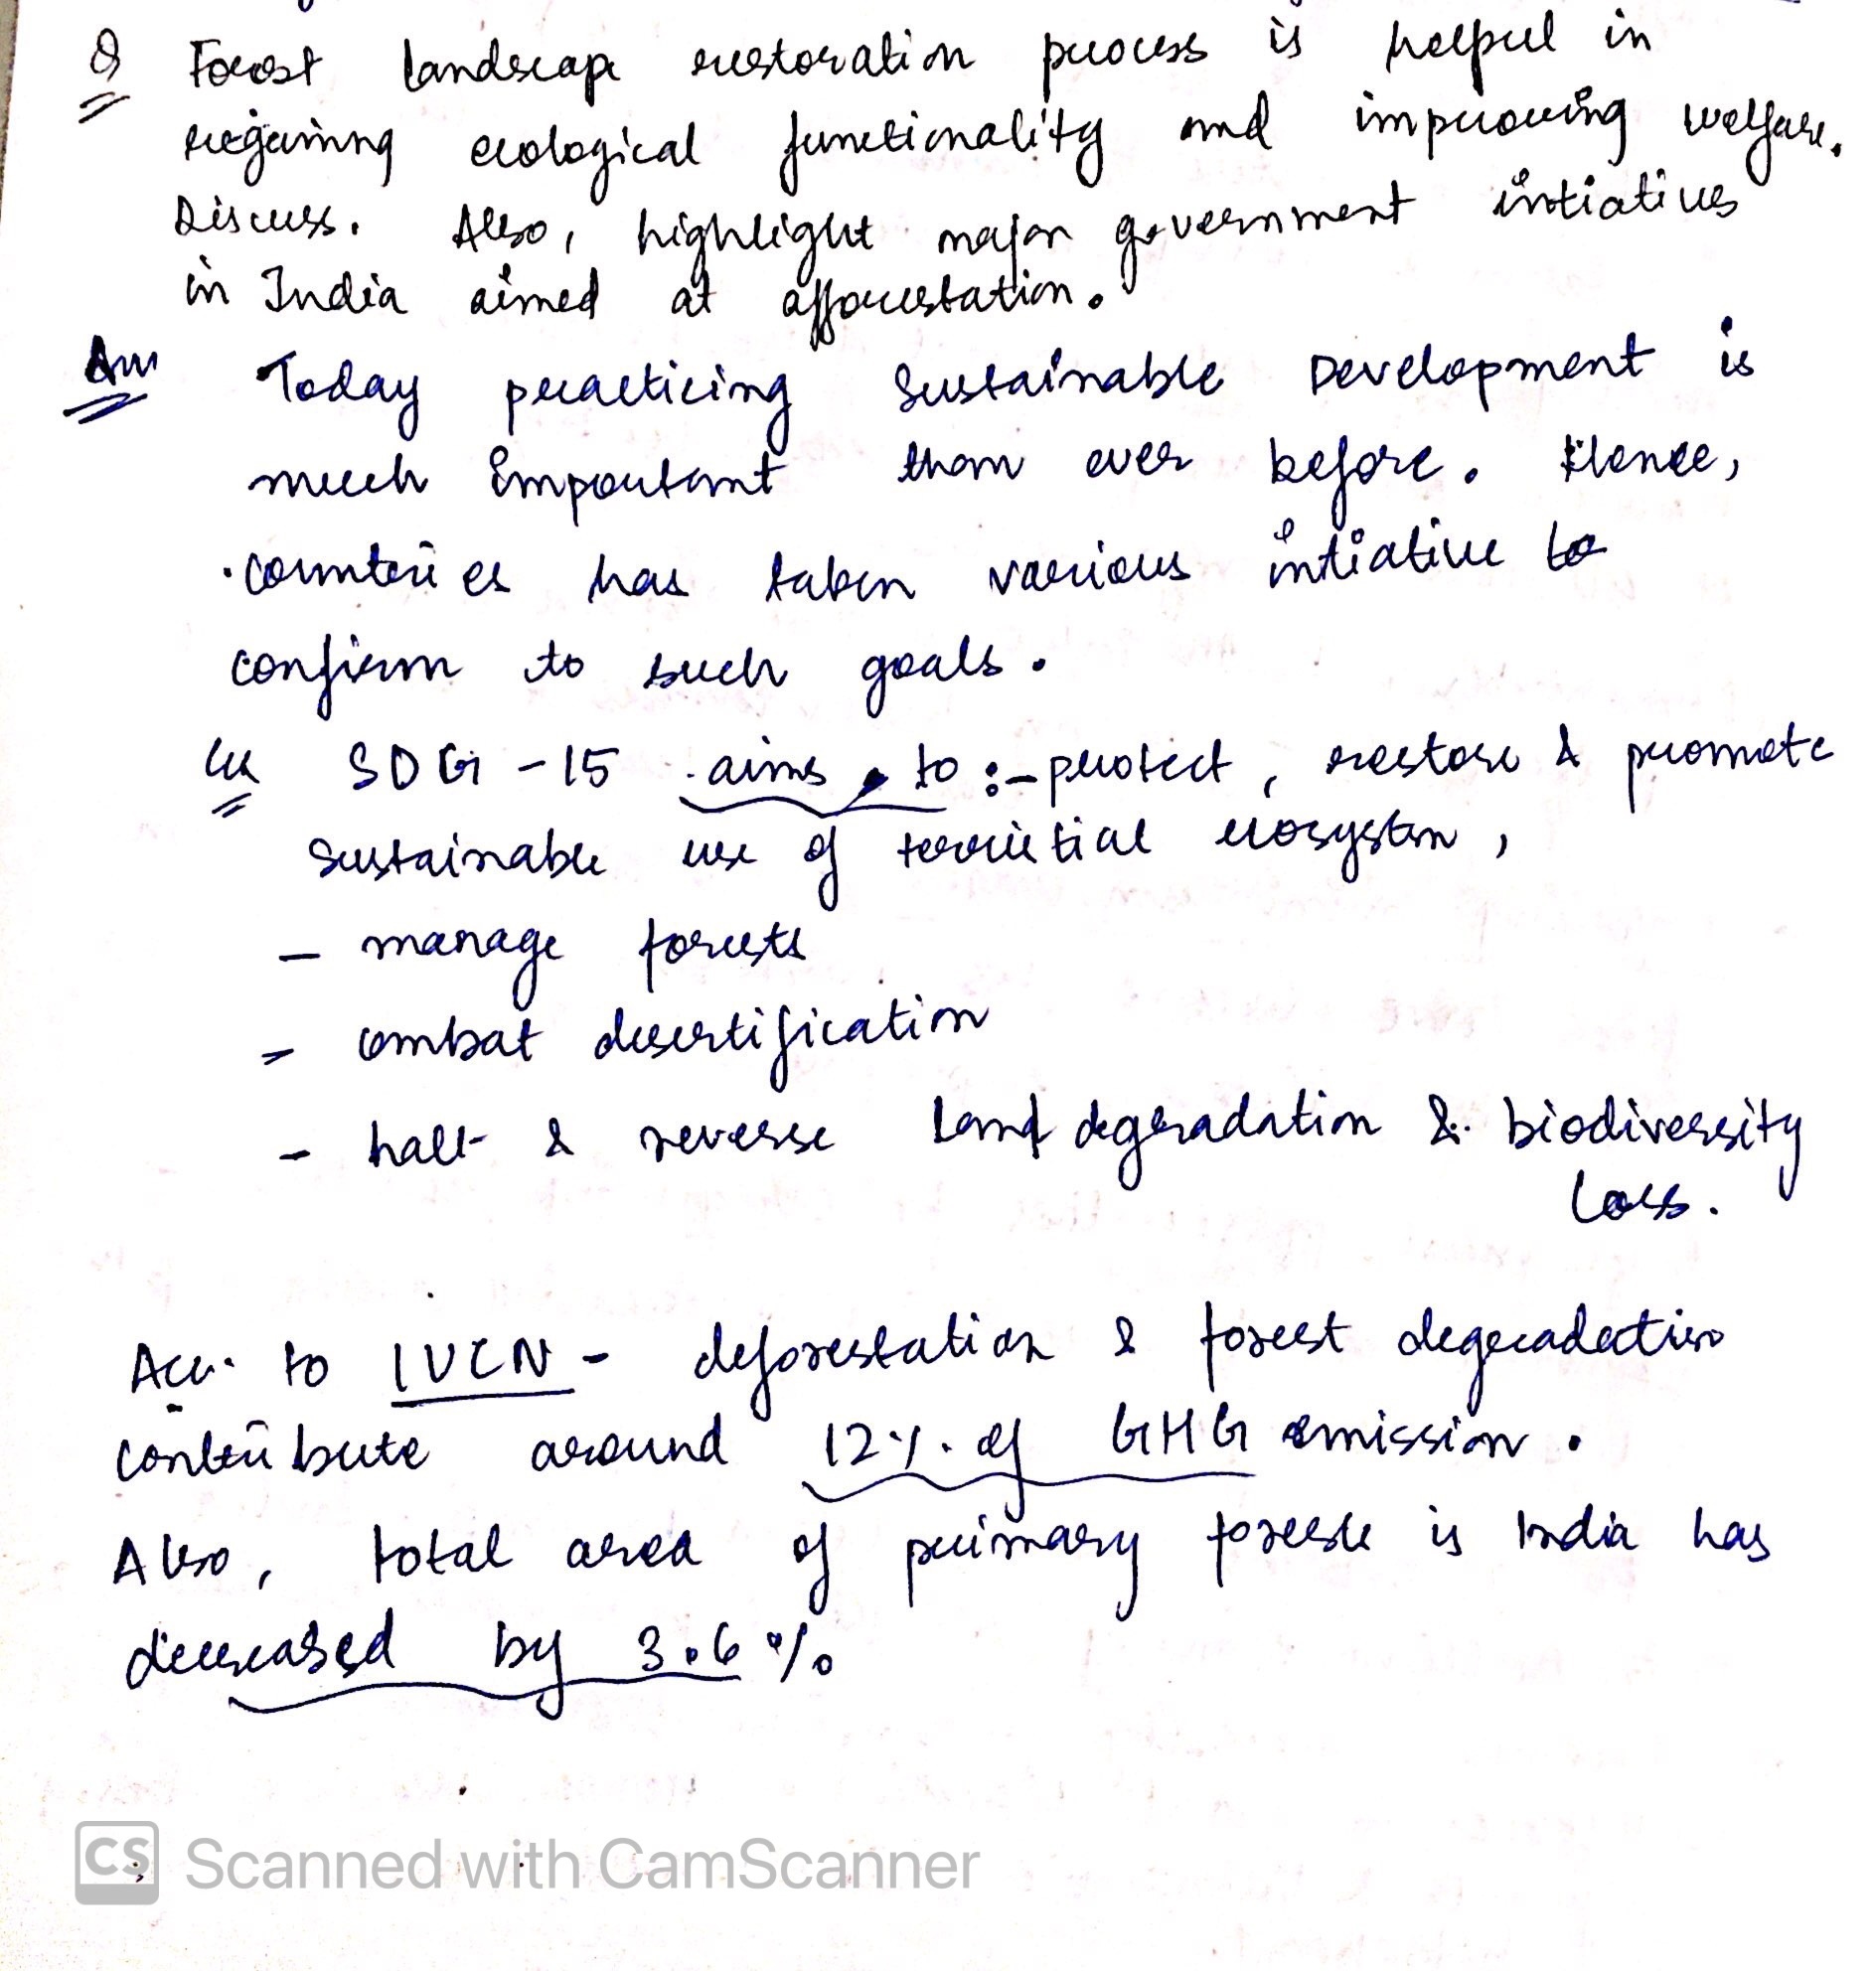 Q Forest landscape restoration process is helpul in
regaining ecological functionality and improving welfare.
Discuss. Also, highlight major government intiatives
in India aimed at afforestation.
Ans Today practicing Sustainable Development is
much Important than ever before. Hence,
countries has taken various intiative to
confirm to such goals.
SDG -15 aims to :- protect, restore & promote
sustainable use of ecosystem,
- manage forests
- combat desertification
- halt & reverse Land degradation & biodiversity
loss.
Acc. to IUCN - deforestation & forest degradation
contribute around 12%. of GHG emission.
Also, total area of primary forests is India has
decreased by 3.6 %
CS Scanned with CamScanner